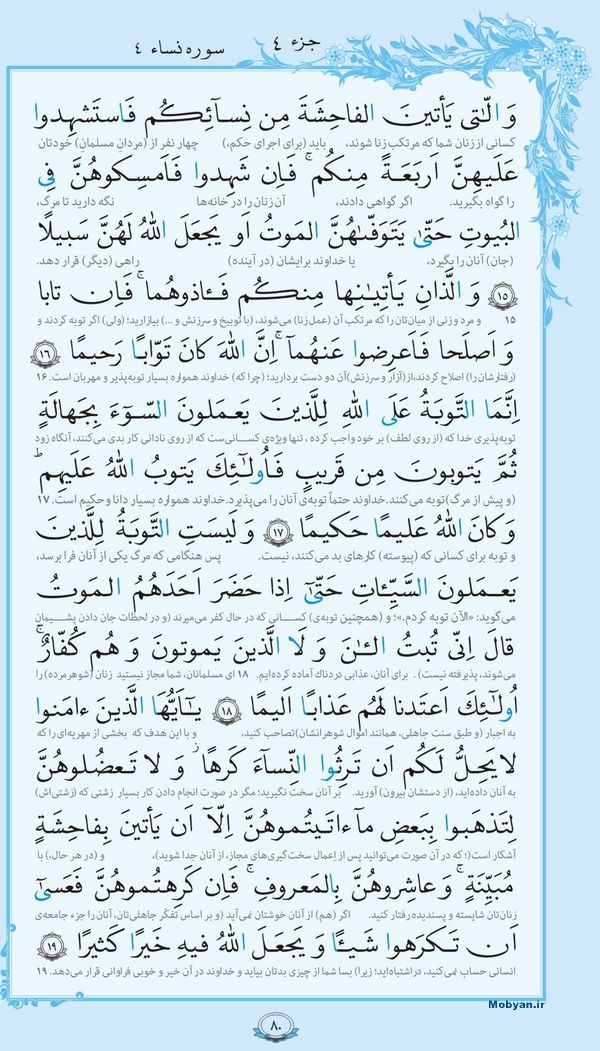 جزء ٤
سوره نساء ٤
وَ الّٰتی یَأتینَ الفاحِشَةَ مِن نِسآئِکُم فَاستَشهِدوا
کسانی از زنان شما که مرتکب زنا شوند، باید (برای اجرای حکم،) چهار نفر از (مردانِ مسلمانِ) خودتان
عَلَیهِنَّ اَربَعَةً مِنکُم ۚ فَاِن شَهِدوا فَاَمسِکوهُنَّ فِی
را گواه بگیرید. اگر گواهی دادند، آن زنان را در خانه‌ها نگه دارید تا مرگ،
البُیوتِ حَتّیٰ یَتَوَفّٰىهُنَّ المَوتُ اَو یَجعَلَ اللهُ لَهُنَّ سَبیلًا
(جان) آنان را بگیرد، یا خداوند برایشان (در آینده) راهی (دیگر) قرار دهد.
۱۵ وَ الَّذانِ یَأتِیٰنِها مِنکُم فَـٔاذوهُما ۖ فَاِن تابا
۱۵ و مرد و زنی از میان‌تان را که مرتکب آن (عمل زنا) می‌شوند، (با توبیخ و سرزنش و ...) بیازارید؛ (ولی) اگر توبه کردند و
وَ اَصلَحا فَاَعرِضوا عَنهُمآ ۗ اِنَّ اللهَ کانَ تَوّابًا رَحیمًا ۱۶
(رفتارشان را) اصلاح کردند،(از آزار و سرزنشِ) آن دو دست بردارید؛ (چرا که) خداوند همواره بسیار توبه‌پذیر و مهربان است. ۱۶
اِنَّمَا التَّوبَةُ عَلَی اللهِ لِلَّذینَ یَعمَلونَ السّوٓءَ بِجَهالَةٍ
توبه‌پذیری خدا که (از روی لطف) بر خود واجب کرده ، تنها ویژه‌ی کسانی‌ست که از روی نادانی کار بدی می‌کنند، آنگاه زود
ثُمَّ یَتوبونَ مِن قَریبٍ فَاُولٰٓئِکَ یَتوبُ اللهُ عَلَیهِم ۗ
(و پیش از مرگ) توبه می‌کنند. خداوند حتماً توبه‌ی آنان را می‌پذیرد. خداوند همواره بسیار دانا و حکیم است. ۱۷
وَ کانَ اللهُ عَلیمًا حَکیمًا ۱۷ وَ لَیسَتِ التَّوبَةُ لِلَّذینَ
و توبه برای کسانی که (پیوسته) کارهای بد می‌کنند، نیست. پس هنگامی که مرگ یکی از آنان فرا برسد،
یَعمَلونَ السَّیِّـٔاتِ حَتّیٰٓ اِذا حَضَرَ اَحَدَهُمُ المَوتُ
می‌گوید: «الآن توبه کردم.»؛ و (همچنین توبه‌ی) کسانی که در حال کفر می‌میرند (و در لحظات جان دادن پشیمان
قالَ اِنّی تُبتُ الـٰٔنَ وَ لَا الَّذینَ یَموتونَ وَ هُم کُفّارٌ ۚ
می‌شوند، پذیرفته نیست) . برای آنان، عذابی دردناک آماده کرده‌ایم. ۱۸ ای مسلمانان، شما مجاز نیستید زنان (شوهرمرده) را
اُولٰٓئِکَ اَعتَدنا لَهُم عَذابًا اَلیمًا ۱۸ یٰٓاَیُّهَا الَّذینَ ءامَنوا
به اجبار (و طبق سنت جاهلی، همانند اموال شوهرانشان) تصاحب کنید، و با این هدف که بخشی از مهریه‌ای را که
لا یَحِلُّ لَکُم اَن تَرِثُوا النِّسآءَ کَرهًا ۖ وَ لا تَعضُلوهُنَّ
به آنان داده‌اید، (از دستشان بیرون) آورید. بر آنان سخت نگیرید؛ مگر در صورت انجام دادن کار بسیار زشتی که (زشتی‌اش)
لِتَذهَبوا بِبَعضِ مآ ءاتَیتُموهُنَّ اِلّآ اَن یَأتینَ بِفاحِشَةٍ
آشکار است(؛ که در آن صورت می‌توانید پس از اعمال سخت‌گیری‌های مجاز، از آنان جدا شوید)، و (در هر حال،) با
مُبَیِّنَةٍ ۚ وَ عاشِروهُنَّ بِالمَعروفِ ۚ فَاِن کَرِهتُموهُنَّ فَعَسیٰٓ
زنان‌تان شایسته و پسندیده رفتار کنید. اگر (هم) از آنان خوشتان نمی‌آید (و بر اساس تفکّر جاهلی‌تان، آنان را جزء جامعه‌ی
اَن تَکرَهوا شَیـًٔا وَ یَجعَلَ اللهُ فیهِ خَیرًا کَثیرًا ۱۹
انسانی حساب نمی‌کنید، در اشتباه‌اید؛ زیرا) بسا شما از چیزی بدتان بیاید و خداوند در آن خیر و خوبی فراوانی قرار می‌دهد. ۱۹
Mobyan.ir
۸۰